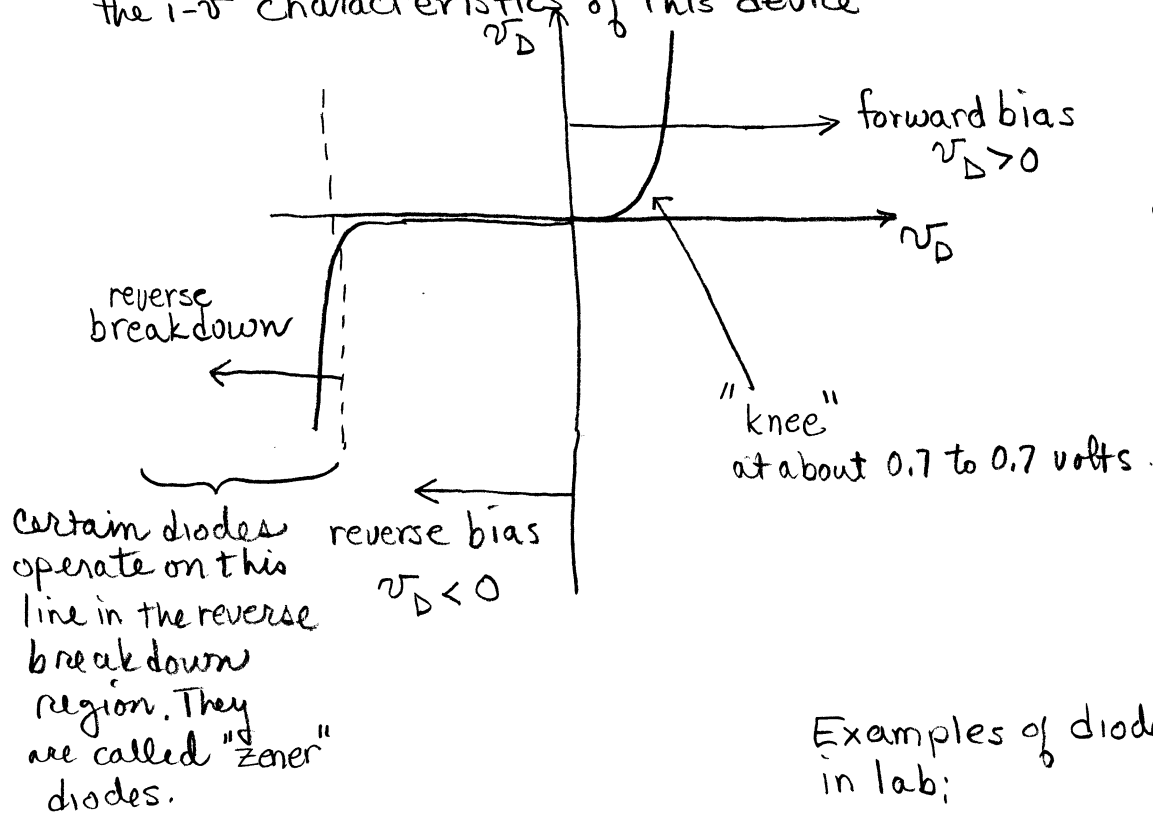 the i-v characteristics of this device
v_D
forward bias
v_D > 0
v_D
reverse
breakdown
"knee"
at about 0.7 to 0.7 volts.
certain diodes
operate on this
line in the reverse
breakdown
region. They
are called "zener"
diodes.
reverse bias
v_D < 0
Examples of diod
in lab;